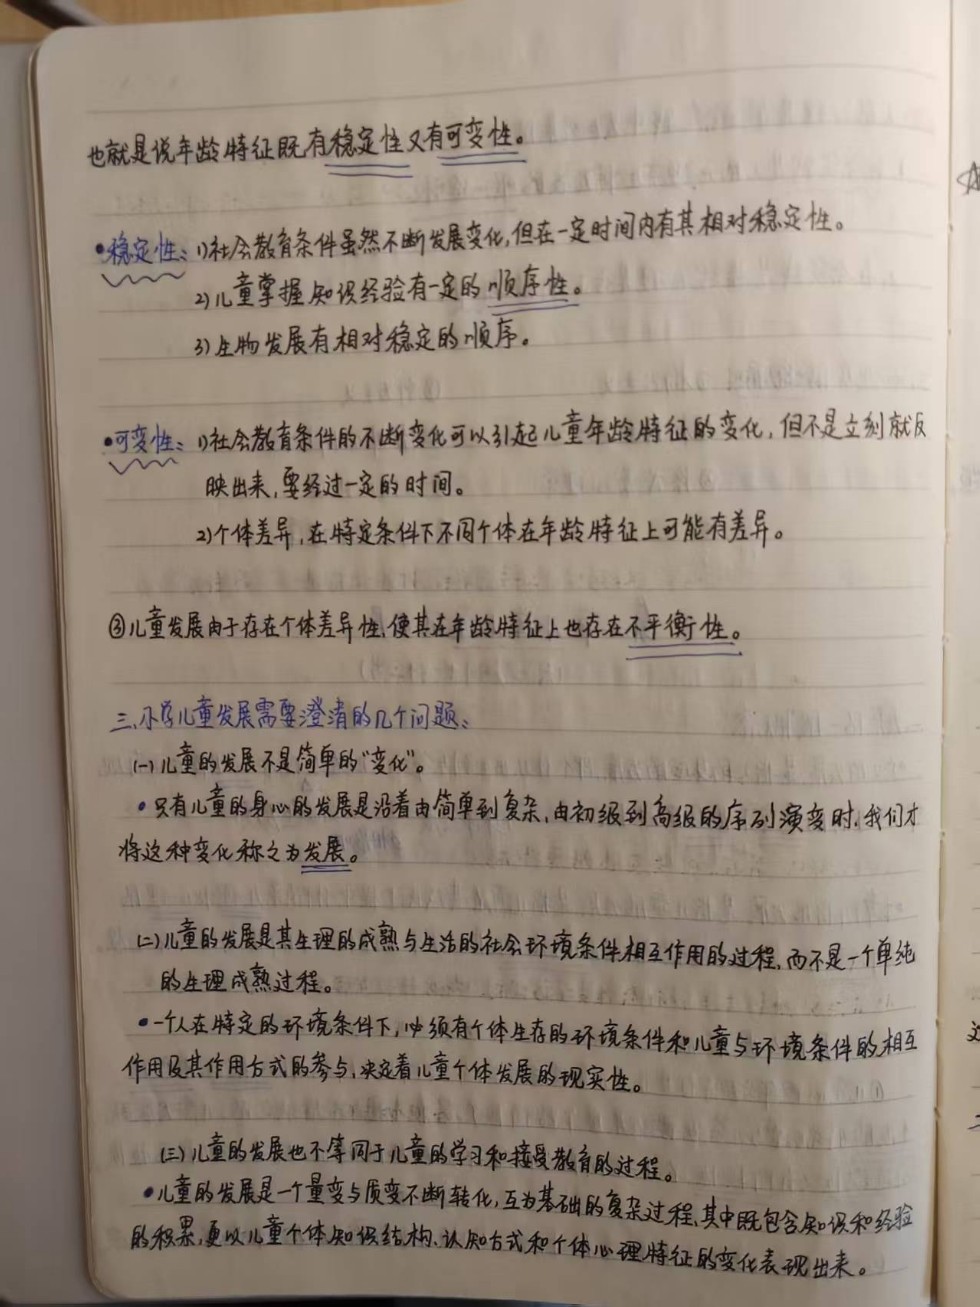 也就是说年龄特征既有稳定性又有可变性。
•稳定性：1)社会教育条件虽然不断发展变化,但在一定时间内有其相对稳定性。
2)儿童掌握知识经验有一定的顺序性。
3)生物发展有相对稳定的顺序。
•可变性：1)社会教育条件的不断变化可以引起儿童年龄特征的变化,但不是立刻就反
映出来,要经过一定的时间。
2)个体差异,在特定条件下不同个体在年龄特征上可能有差异。
③儿童发展由于存在个体差异性,使其在年龄特征上也存在不平衡性。
三、小学儿童发展需要澄清的几个问题：
(一)儿童的发展不是简单的“变化”。
•只有儿童的身心的发展是沿着由简单到复杂、由初级到高级的序列演变时,我们才
将这种变化称之为发展。
(二)儿童的发展是其生理的成熟与生活的社会环境条件相互作用的过程,而不是一个单纯
的生理成熟过程。
•一个人在特定的环境条件下,必须有个体生存的环境条件和儿童与环境条件的相互
作用及其作用方式的参与,决定着儿童个体发展的现实性。
(三)儿童的发展也不等同于儿童的学习和接受教育的过程。
•儿童的发展是一个量变与质变不断转化,互为基础的复杂过程,其中既包含知识和经验
的积累,更以儿童个体知识结构、认知方式和个体心理特征的变化表现出来。